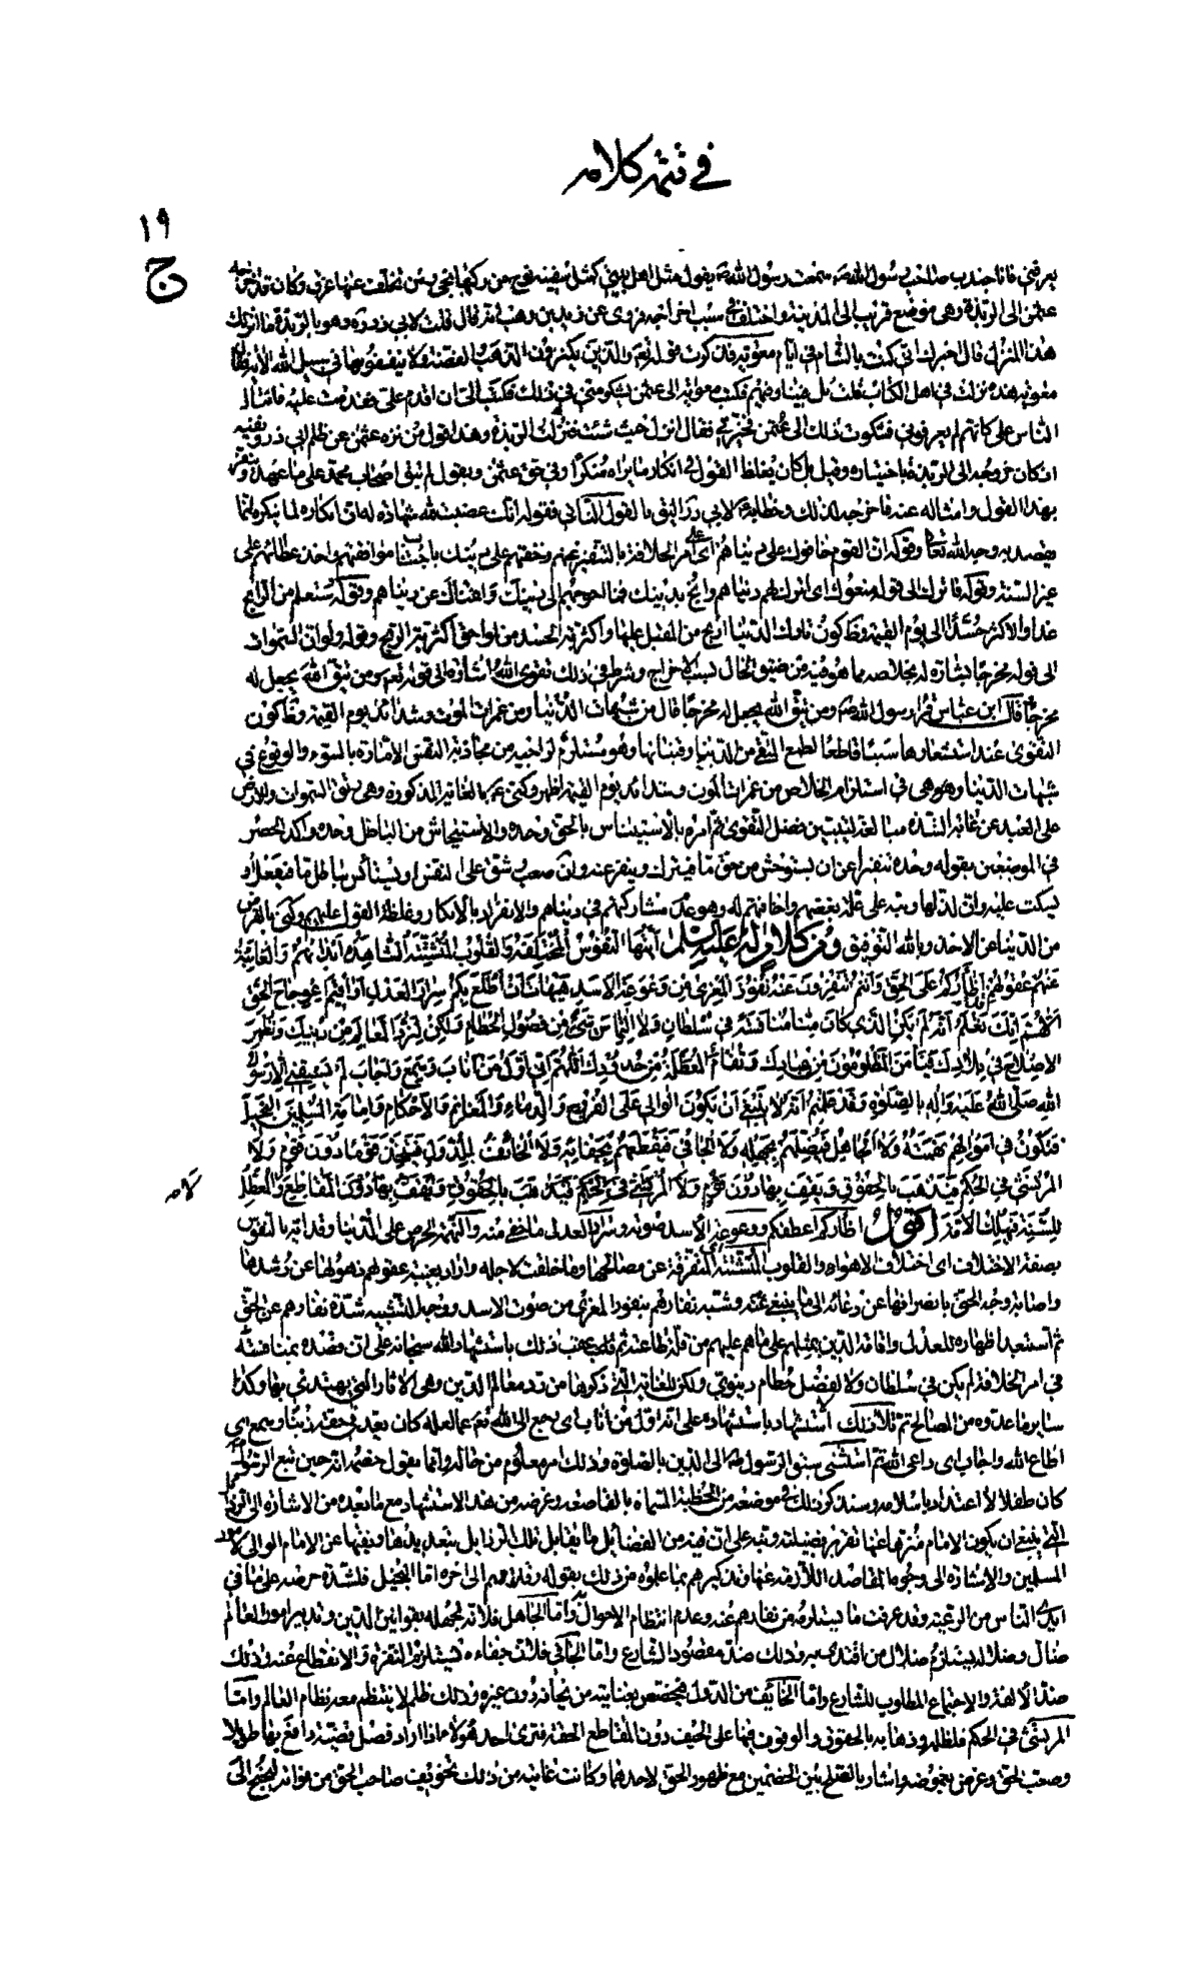 في تتمة كلامه
١٩
ج
يعرفني فانا جندب صاحب رسول الله ص سمعت رسول الله ص يقول مثل اهل بيتي كمثل سفينة نوح من ركبها نجى ومن تخلف عنها غرق وكان قد اخرجه
عثمن الى الربذة وهي موضع قريب الى المدينة واختلف في سبب اخراجه فروى عن زيد بن وهب انه قال قلت لابي ذر ره وهو بالربذة ما انزلك
هذا المنزل قال اخبرك اني كنت بالشام في ايام معوية فذكرت قوله تعم والذين يكنزون الذهب والفضة ولا ينفقونها في سبيل الله الاية فقال
معوية هذه نزلت في اهل الكتاب فقلت بل فينا وفيهم فكتب معوية الى عثمن يشكو مني في ذلك فكتب الي ان اقدم علي فقدمت عليه فانثال
الناس علي كانهم لم يعرفوني فشكوت ذلك الى عثمن فخيرني فقال انزل حيث شئت فنزلت الربذة وهذا قول من نزه عثمن عن ظلم ابي ذر ونفيه
اذ كان خروجه الى الربذة باختياره وقيل بل كان يغلظ القول في انكار ما يراه منكرا وفي حق عثمن ويقول لم يبق اصحاب محمد على ما عهد
بهذا القول وامثاله عنه فاخرجه لذلك وخطابه لابي ذر اليق بالقول الثاني فقوله انك غضبت لله شهادة له ان انكاره لما ينكره انما
يقصد به وجه الله تعالى وقوله ان القوم خافوك على دنياهم اي على امر الخلافة بالتنفير عنهم وخفتهم على دينك باجتناب موافقتهم واخذ عطائهم على
غير السنة وقوله فاترك الى قوله منعوك اي اترك لهم دنياهم وانج بدينك فما احوجهم الى دينك واغناك عن دنياهم وقوله ستعلم من الرابح
غدا والاكثر حسدا الى يوم القيمة وظ كون تارك الدنيا اربح من المقبل عليها واكثرية الحسد من لواحق اكثرية الربح وقوله ولو ان السموات
الى قوله مخرجا بشارة له بخلاصه مما هو فيه من ضيق الحال بسبب الاخراج وشرط في ذلك تقوى الله اشارة الى قوله تعم ومن يتق الله يجعل له
مخرجا قال ابن عباس قرأ رسول الله ص ومن يتق الله يجعل له مخرجا قال من شبهات الدنيا ومن غمرات الموت وشدائد يوم القيمة وظ كون
التقوى عند استشعارها سببا قاطعا لطمع المتقي من الدنيا وقيناتها وهو مستلزم لراحته من مجاذبة النفس الامارة بالسوء والوقوع في
شبهات الدنيا وهي في استلزام الخلاص من غمرات الموت وشدائد يوم القيمة اظهر وكنى ع بالغاية المذكورة وهي رتق السموات والارض
على العبد عن غاية الشدة مبالغة لتبيين فضل التقوى ثم امره بالاستيناس بالحق وحده والاستيحاش من الباطل وحده واكد الحصر
في الموضعين بقوله وحده تنفيرا عن ان يستوحش من حق ما فيترك وينفر عنه وان صعب وشق على النفس او يستأنس بباطل ما فيفعل او
يسكت عليه وان لذ لها ونبه على علة بغضهم واخافتهم له وهو عدم مشاركتهم في دنياهم والانفراد بالانكار وغلظة القول عليهم وكنى بالقرض
من الدنيا عن الاخذ وبالله التوفيق ومن كلام له عليه السلم ايتها النفوس المختلفة والقلوب المتشتتة الشاهدة ابدانهم والغائبة
عنهم عقولهم اظأركم على الحق وانتم تنفرون عنه نفور المعزى من وعوعة الاسد هيهات ان اطلع بكم سرار العدل او اقيم اعوجاج الحق
اللهم انك تعلم انه لم يكن الذي كان منا منافسة في سلطان ولا التماس شئ من فضول الحطام ولكن لنرد المعالم من دينك ونظهر
الاصلاح في بلادك فيأمن المظلومون من عبادك وتقام المعطلة من حدودك اللهم اني اول من اناب وسمع واجاب لم يسبقني الا رسول
الله صلى الله عليه واله بالصلوة وقد علمتم انه لا ينبغي ان يكون الوالي على الفروج والدماء والمغانم والاحكام وامامة المسلمين البخيل
فتكون في اموالهم نهمته ولا الجاهل فيضلهم بجهله ولا الجافي فيقطعهم بجفائه ولا الخائف للدول فيتخذ قوما دون قوم ولا
المرتشي في الحكم فيذهب بالحقوق ويقف بها دون المقاطع ولا المعطل
للسنة فيهلك الامة اقول اظأركم اعطفكم ووعوعة الاسد صوته وسرار العدل ما خفي منه والنهمة الحرص على الدنيا وقد ايه بالنفوس
بصفة الاختلاف اي اختلاف الاهواء والقلوب المتشتتة اي المتفرقة عن مصالحها وما خلقت لاجله واراد بغيبة عقولهم ذهولها عن رشدها
واصابة وجه الحق بانصرافها عن دعائه الى ما ينبغي عنه وشبه نفارهم بنفور المعزى من صوت الاسد ووجه التشبيه شدة نفارهم عن الحق
ثم استبعد اظهاره للعدل واقامة الدين بمثلهم على ما هم عليهم من قلة طاعته ثم عقب ذلك باستشهاد الله سبحانه على ان قصده بمنافسته
في امر الخلافة لم يكن في سلطان ولا لفضل حطام دنيوي ولكن للغاية التي ذكرها من رد معالم الدين وهي الاثار التي يهتدى بها وكذا
ساير ما عدده من المصالح ثم تلا ذلك استشهاد باستشهاده على انه اول من اناب اي رجع الى الله تعم
اطاع الله واجاب اي داعي الله ثم استثنى سبق الرسول ص الى الدين بالصلوة وذلك امر معلوم من حاله وانما يقول خصمه انه حين تبع الرسول
كان طفلا لا اعتداد باسلامه وسنذكر ذلك في موضعه من الخطبة المسماة بالقاصعة وغرضه من هذا الاستشهاد مع ما بعده من الاشارة الى الرذايل
التي ينبغي ان يكون الامام منزها عنها تقرير فضيلته ونبه على ان فيه من الفضايل ما يقابل تلك الرذايل بتعديدها ونفيها عن الامام الوالي لامور
المسلمين والاشارة الى وجوه المفاصد اللازمة عنها وتذكيرهم بما علموه من ذلك بقوله وقد علمتم الى اخره اما البخيل فلشدة حرصه على ما في
ايدي الناس من الرعية وقد عرفت ما يستلزمه من نفارهم عنه وعدم انتظام الاحوال واما الجاهل فلانه لجهله بقوانين الدين وتدبير امور العالم
ضال وضلاله يستلزم ضلال من اقتدى به وذلك ضد مقصود الشارع واما الجافي فلان جفاءه يستلزم النفرة والانقطاع عنه وذلك
ضد الالفة والاجتماع المطلوب للشارع واما الخائف من الدول فيختص بعنايته من يخافه دون غيره وذلك ظلم لا ينتظم معه نظام العالم واما
المرتشي في الحكم فلظلمه وذهابه بالحقوق والوقوف فيها على الحيف دون المقاطع الحقة فترى احد هؤلاء اذا اراد فصل قضية دافع بها طويلا
وصعب الحق وعرض بغموضه واشار بالصلح بين الخصمين مع ظهور الحق لاحدهما وكانت غايته من ذلك تخويف صاحب الحق من فواته ليجنح الى